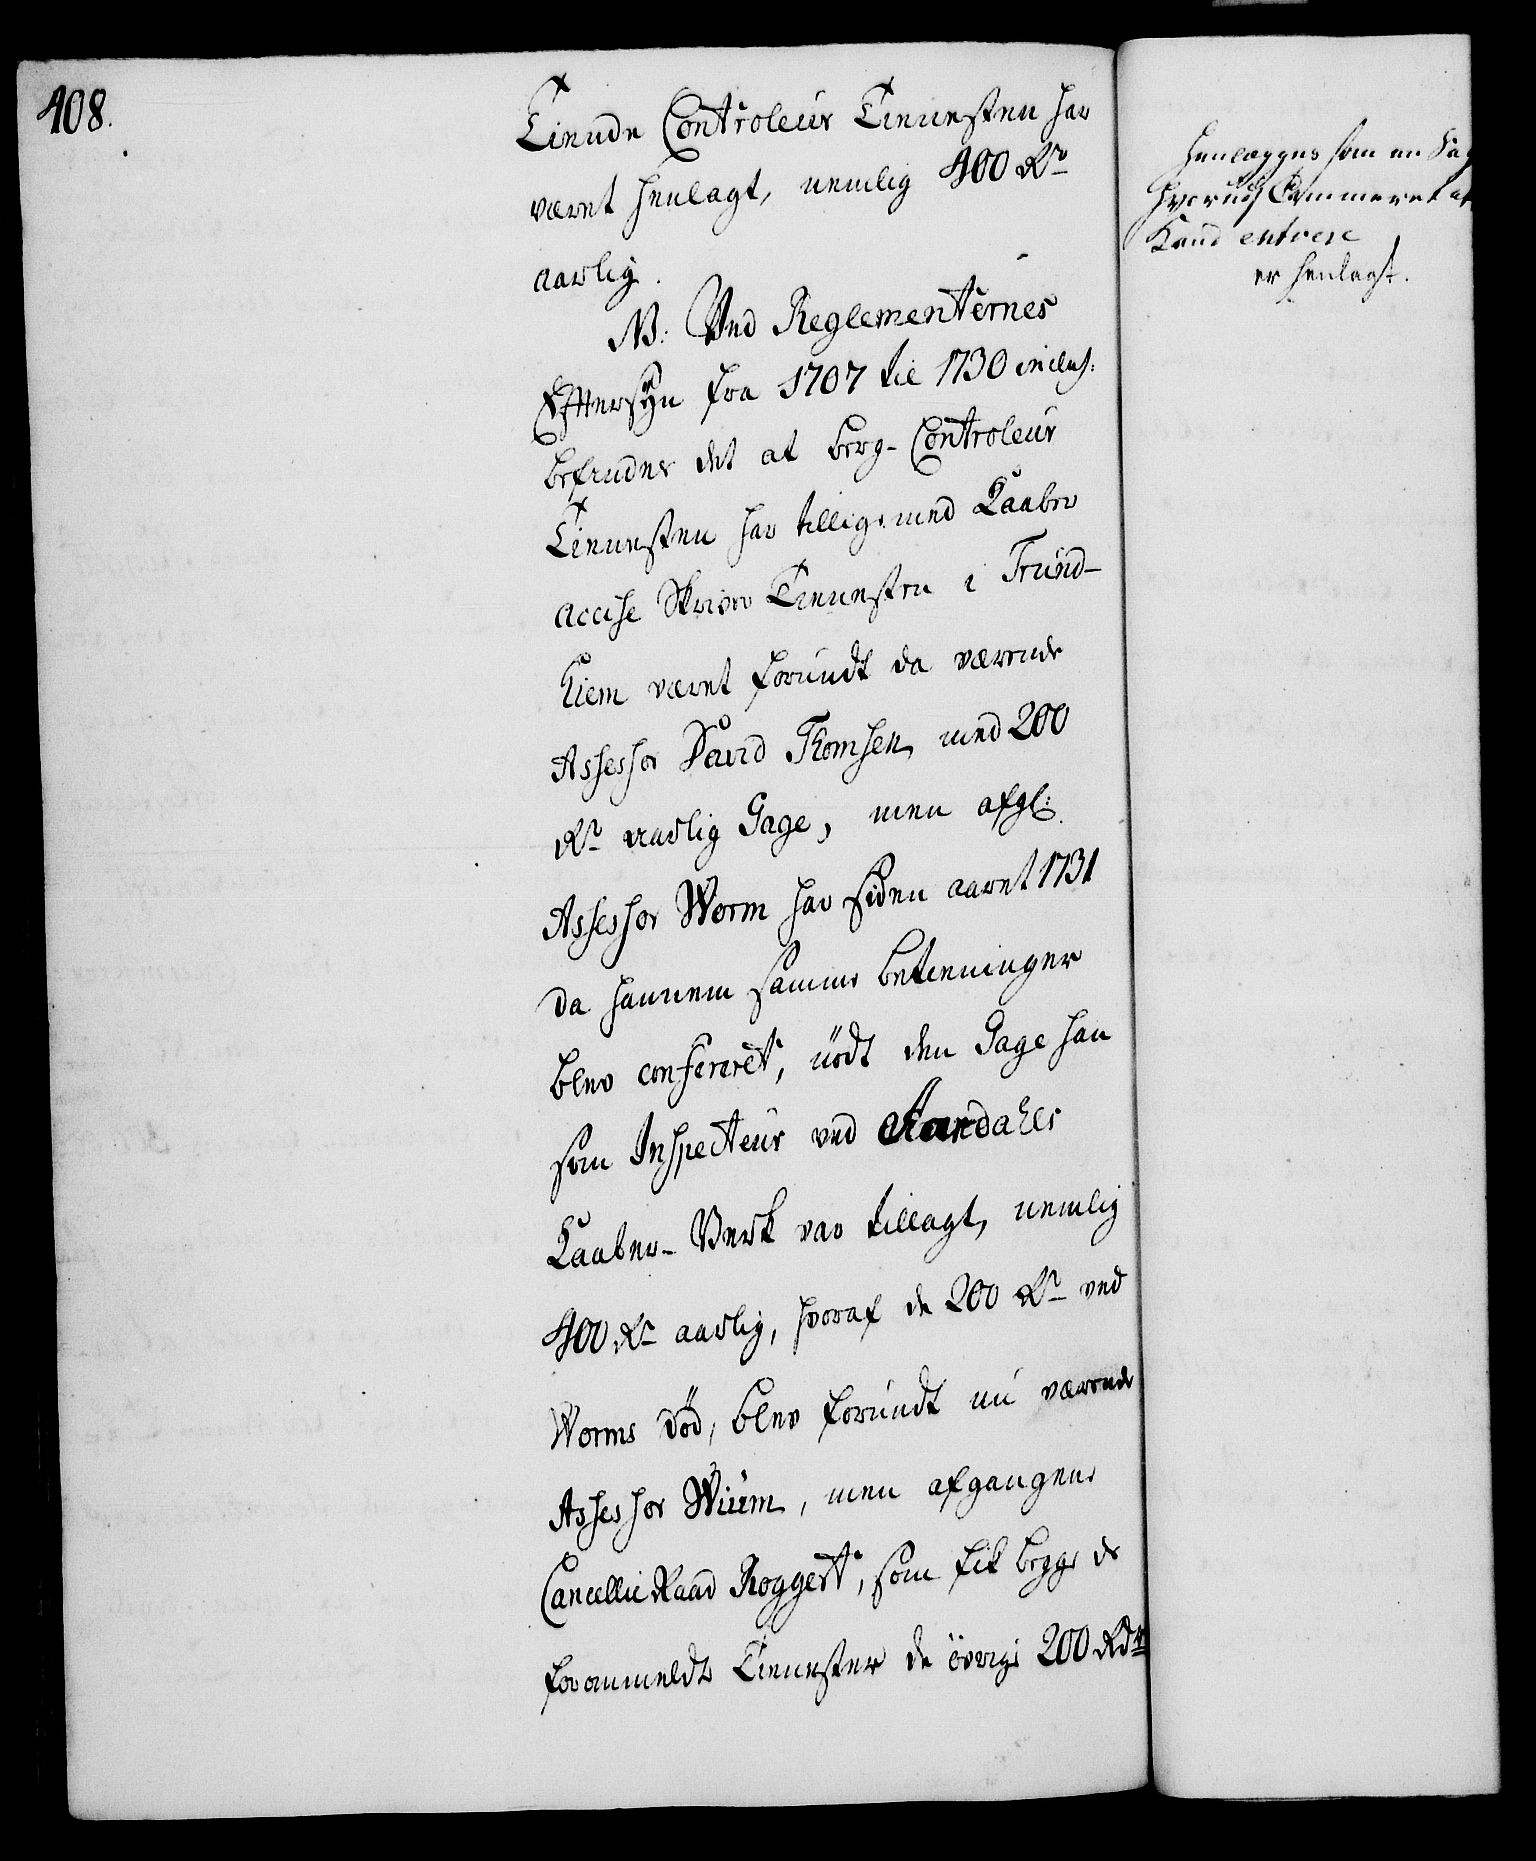 408.
Tiende Controleur Tienesten har
været henlagt, nemlig 400 Rdr
aarlig.
NB: Ved Reglementernes
Eftersyn fra 1707 til 1730 inclus:
befindes det at berg-Controleur
Tienesten har tillige med Kaaber
accise Skriver Tienesten i Trund-
hiem været forundt da værende
Assessor David Thomsen med 200
Rdr aarlig Gage, men afg:
Assessor Worm har siden aaret 1731
da hannem samme betieninger
blev confereret, nödt den Gage han
som Inspecteur ved Aardahls
Kaaber-Verk var tillagt, nemlig
400 Rdr aarlig, hvoraf de 200 Rdr ved
Worms död, blev forundt nu værende
Assessor Wium, men afgangene
Cancellie Raad Roggert, som fik begge de
forommeldte Tienester de övrige 200 Rdr
Henlægges som en Sag
hvorudj Cammeret
Kand entrere
er henlagt.